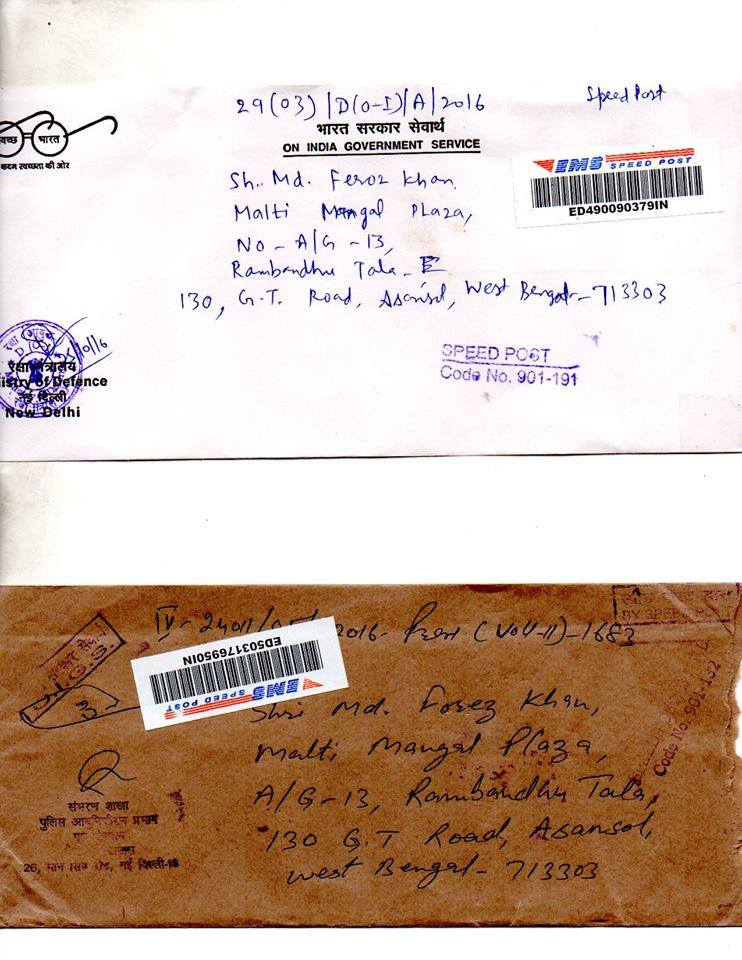 29(03)/D(O-I)/A/2016
Speed Post
भारत सरकार सेवार्थ
ON INDIA GOVERNMENT SERVICE
भारत
कदम स्वच्छता की ओर
EMS SPEED POST
ED490090379IN
Sh. Md. Feroz Khan.
Malti Mangal Plaza,
No - A/G - 13,
Rambandhu Tala - E
130, G.T. Road, Asansol, West Bengal - 713303
SPEED POST
Code No. 901-191
रक्षा मंत्रालय
istry of Defence
नई दिल्ली
New Delhi
2016-
(VOL-II)-1682
BY SPEED POST
ED503176950IN
EMS SPEED POST
Code No. 901-132
Shri Md. Forez Khan,
Malti Mangal Plaza,
A/G-13, Rambandhu Tala,
130 G.T Road, Asansol,
West Bengal - 713303
संभरण शाखा
पुलिस
26, मान सिंह रोड, नई दिल्ली-